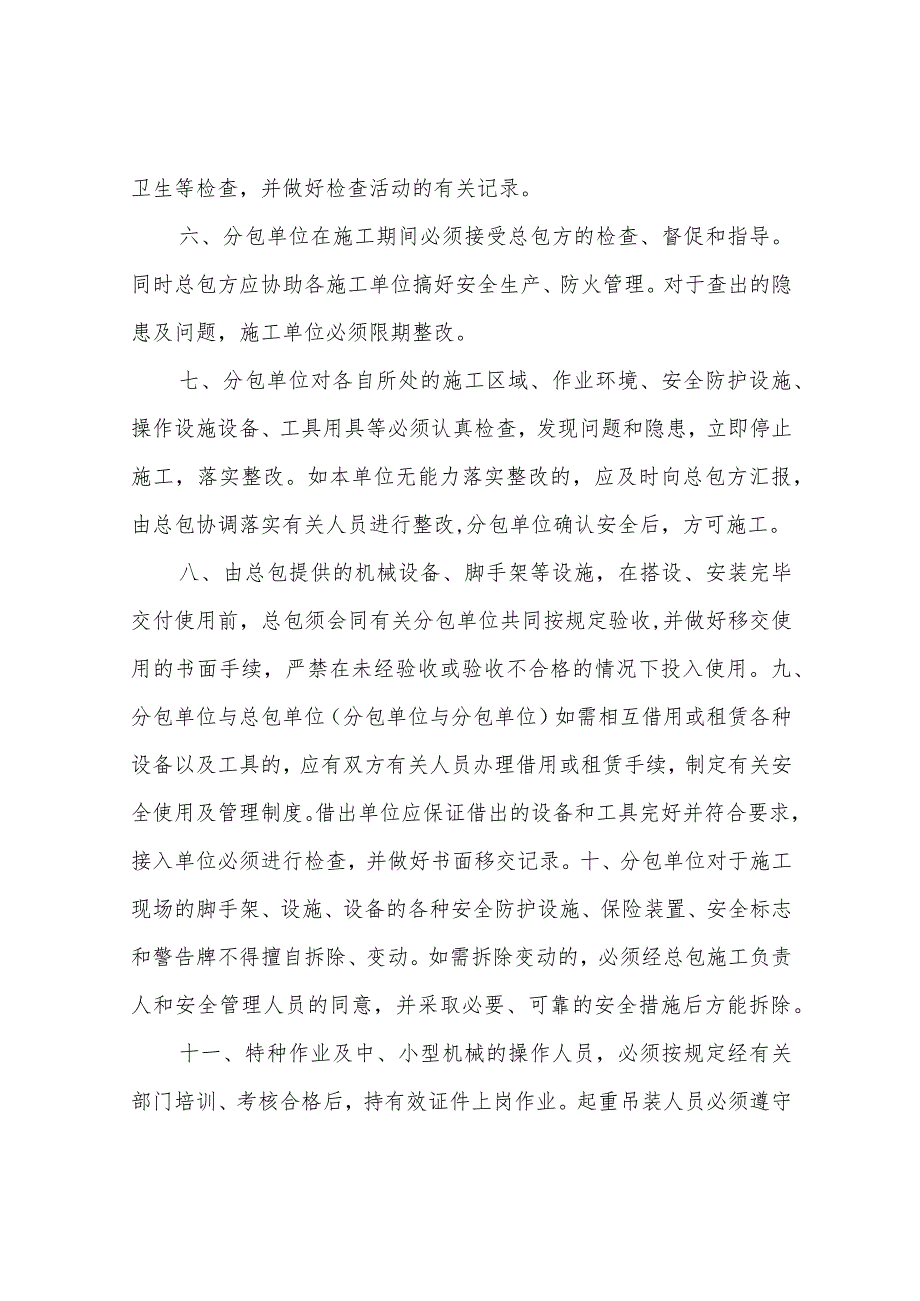 卫生等检查，并做好检查活动的有关记录。
六、分包单位在施工期间必须接受总包方的检查、督促和指导。
同时总包方应协助各施工单位搞好安全生产、防火管理。对于查出的隐
患及问题，施工单位必须限期整改。
七、分包单位对各自所处的施工区域、作业环境、安全防护设施、
操作设施设备、工具用具等必须认真检查，发现问题和隐患，立即停止
施工，落实整改。如本单位无能力落实整改的，应及时向总包方汇报，
由总包协调落实有关人员进行整改,分包单位确认安全后，方可施工。
八、由总包提供的机械设备、脚手架等设施，在搭设、安装完毕
交付使用前，总包须会同有关分包单位共同按规定验收,并做好移交使
用的书面手续，严禁在未经验收或验收不合格的情况下投入使用。九、
分包单位与总包单位（分包单位与分包单位）如需相互借用或租赁各种
设备以及工具的，应有双方有关人员办理借用或租赁手续，制定有关安
全使用及管理制度。借出单位应保证借出的设备和工具完好并符合要求，
接入单位必须进行检查，并做好书面移交记录。十、分包单位对于施工
现场的脚手架、设施、设备的各种安全防护设施、保险装置、安全标志
和警告牌不得擅自拆除、变动。如需拆除变动的，必须经总包施工负责
人和安全管理人员的同意，并采取必要、可靠的安全措施后方能拆除。
十一、特种作业及中、小型机械的操作人员，必须按规定经有关
部门培训、考核合格后，持有效证件上岗作业。起重吊装人员必须遵守